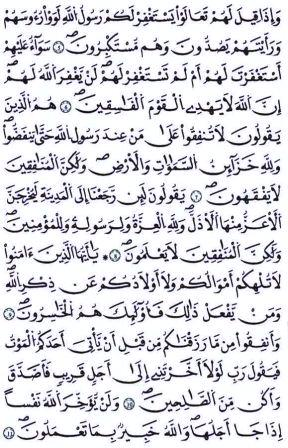 وَإِذَا قِيلَ لَهُمْ تَعَالَوْا يَسْتَغْفِرْ لَكُمْ رَسُولُ اللَّهِ لَوَّوْا رُءُوسَهُمْ
وَرَأَيْتَهُمْ يَصُدُّونَ وَهُم مُّسْتَكْبِرُونَ ۝٥ سَوَاءٌ عَلَيْهِمْ
أَسْتَغْفَرْتَ لَهُمْ أَمْ لَمْ تَسْتَغْفِرْ لَهُمْ لَن يَغْفِرَ اللَّهُ لَهُمْ
إِنَّ اللَّهَ لَا يَهْدِي الْقَوْمَ الْفَاسِقِينَ ۝٦ هُمُ الَّذِينَ
يَقُولُونَ لَا تُنفِقُوا عَلَىٰ مَنْ عِندَ رَسُولِ اللَّهِ حَتَّىٰ يَنفَضُّوا
وَلِلَّهِ خَزَائِنُ السَّمَاوَاتِ وَالْأَرْضِ وَلَٰكِنَّ الْمُنَافِقِينَ
لَا يَفْقَهُونَ ۝٧ يَقُولُونَ لَئِن رَّجَعْنَا إِلَى الْمَدِينَةِ لَيُخْرِجَنَّ
الْأَعَزُّ مِنْهَا الْأَذَلَّ وَلِلَّهِ الْعِزَّةُ وَلِرَسُولِهِ وَلِلْمُؤْمِنِينَ
وَلَٰكِنَّ الْمُنَافِقِينَ لَا يَعْلَمُونَ ۝٨ يَا أَيُّهَا الَّذِينَ ءَامَنُوا
لَا تُلْهِكُمْ أَمْوَالُكُمْ وَلَا أَوْلَادُكُمْ عَن ذِكْرِ اللَّهِ
وَمَن يَفْعَلْ ذَٰلِكَ فَأُولَٰئِكَ هُمُ الْخَاسِرُونَ ۝٩
وَأَنفِقُوا مِن مَّا رَزَقْنَاكُم مِّن قَبْلِ أَن يَأْتِيَ أَحَدَكُمُ الْمَوْتُ
فَيَقُولَ رَبِّ لَوْلَا أَخَّرْتَنِي إِلَىٰ أَجَلٍ قَرِيبٍ فَأَصَّدَّقَ
وَأَكُن مِّنَ الصَّالِحِينَ ۝١٠ وَلَن يُؤَخِّرَ اللَّهُ نَفْسًا
إِذَا جَاءَ أَجَلُهَا وَاللَّهُ خَبِيرٌ بِمَا تَعْمَلُونَ ۝١١